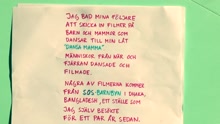 JAG BAD MINA FÖLJARE
ATT SKICKA IN FILMER PÅ
BARN OCH MAMMOR SOM
DANSAR TILL MIN LÅT
"DANSA MAMMA"
MÄNNISKOR FRÅN NÄR OCH
FJÄRRAN DANSADE OCH
FILMADE.
NÅGRA AV FILMERNA KOMMER
FRÅN SOS-BARNBYN I DHAKA,
BANGLADESH, ETT STÄLLE SOM
JAG SJÄLV BESÖKTE
FÖR ETT PAR ÅR SEDAN.